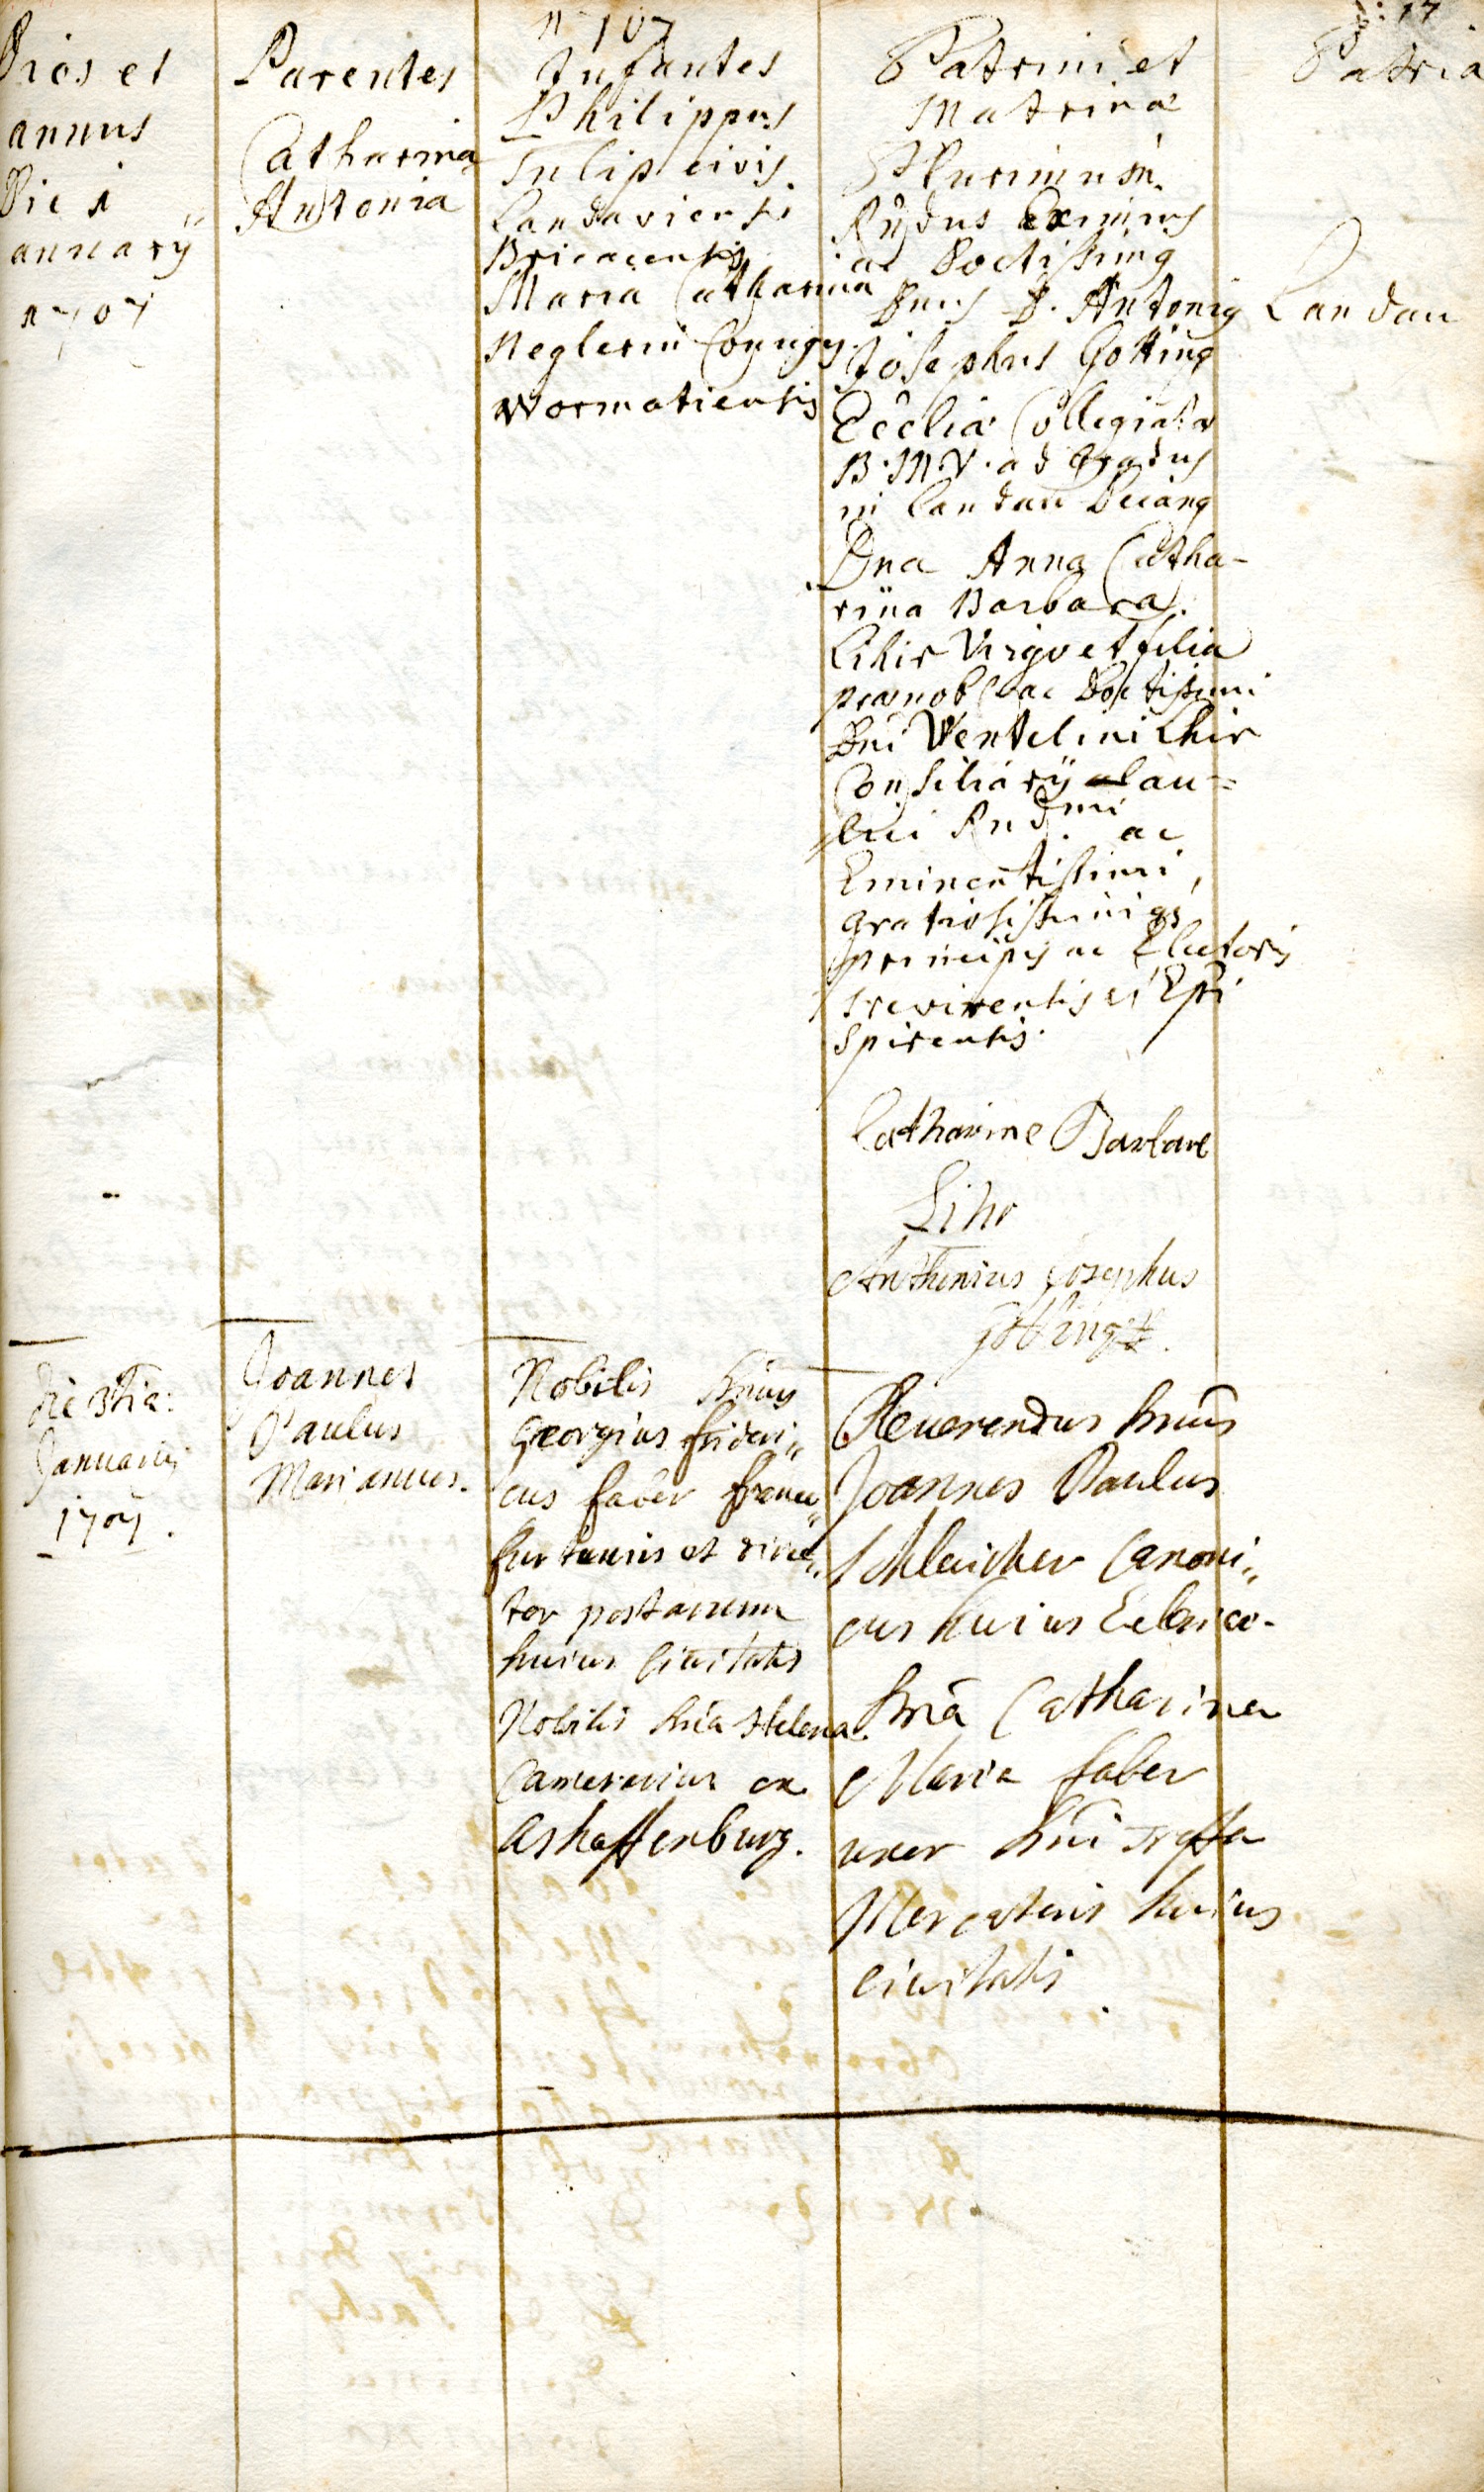 n 107
17
Dies et
annus
Die 1
annuarÿ
1707
Parentes
Catharina
Antonia
Infantes
Philippus
Tulip civis
Landaviensis
Maria Catharina
Neglerin Conjugis
Wormatiensis
Patrini et
Matrina
Plurimum
Rndus Eximius
ac Doctissimq
Dnus D. Antoniq
Josephus Gotting
Ecclia Collegiata
B. M. V. ad Gradus
in Landau Decanq
Dna Anna Catha-
rina Barbara
Lihir Virgo et filia
praenob. ac Doctissimi
Dni Wentelini Lihir
Consiliarÿ au=
lici Rndmi ac
Eminentissimi,
gratiosissimi qs
principis ac Electoris
Trevirensis et Epi
Spirensis.
Catharine Barbare
Lihr
Anthonius Josephus
Götting
Patria
Landau
Die 3tia:
Januarii
1707.
Joannes
Paulus
Marianus.
Nobilis Dnus
Georgius frideri„
cus faber francu„
furtanus et direc„
tor postarum
huius Civitatis
Nobilis Dna Helena
Camerarius ex
Ashaffenburg.
Reuerendus Dnus
Joannes Paulus
Schleicher Canoni„
cus huius
Dna Catharina
Maria faber
uxor Dni
Mercatoris huius
Civitatis